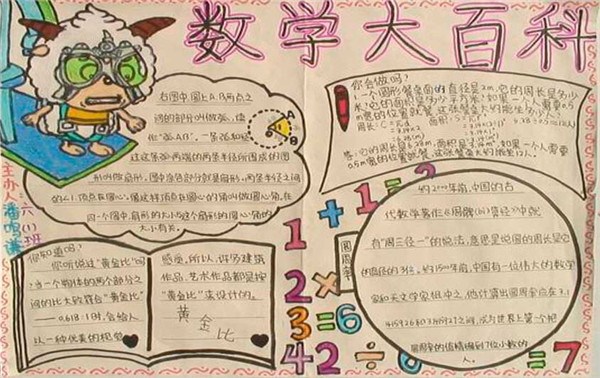 数学大百科
主办人
六(1)班
右图中,圆上A、B两点之
间的部分叫做弧,读
作“弧AB”,一条弧和经
过这条弧两端的两条半径所围成的图
形叫做扇形。图中涂色部分就是扇形,两条半径之间
的∠1,顶点在圆心,像这样顶点在圆心的角叫做圆心角。在
同一个圆中,扇形的大小与这个扇形的圆心角的
大小有关。
A
B
你会做吗?
一个圆形餐桌面的直径是2m,它的周长是多少
米?它的面积是多少平方米?如果一个人需要0.5
m宽的位置就餐,这张餐桌大约能坐多少人?
答:它的周长是6.28m,面积是3.14m²,如果一个人需要
0.5m宽的位置就餐,这张餐桌大约能坐12人。
你知道吗?
你听说过“黄金比”吗
?当一个物体的两个部分之
间的比大致符合“黄金比”
——0.618:1时,会给人
以一种优美的视觉
感觉。所以,许多建筑
作品、艺术作品都是按
“黄金比”来设计的。
黄金比
1+1=2
2×
3=6
42÷6=7
圆周率
约2000年前,中国的古
代数学著作《周髀(bì)算经》中就
有“周三径一”的说法,意思是说圆的周长是它
的直径的3倍。约1500年前,中国有一位伟大的数学
家和天文学家祖冲之,他计算出圆周率应在3.1
415926和3.1415927之间,成为世界上第一个把
圆周率的值精确到7位小数的
人。